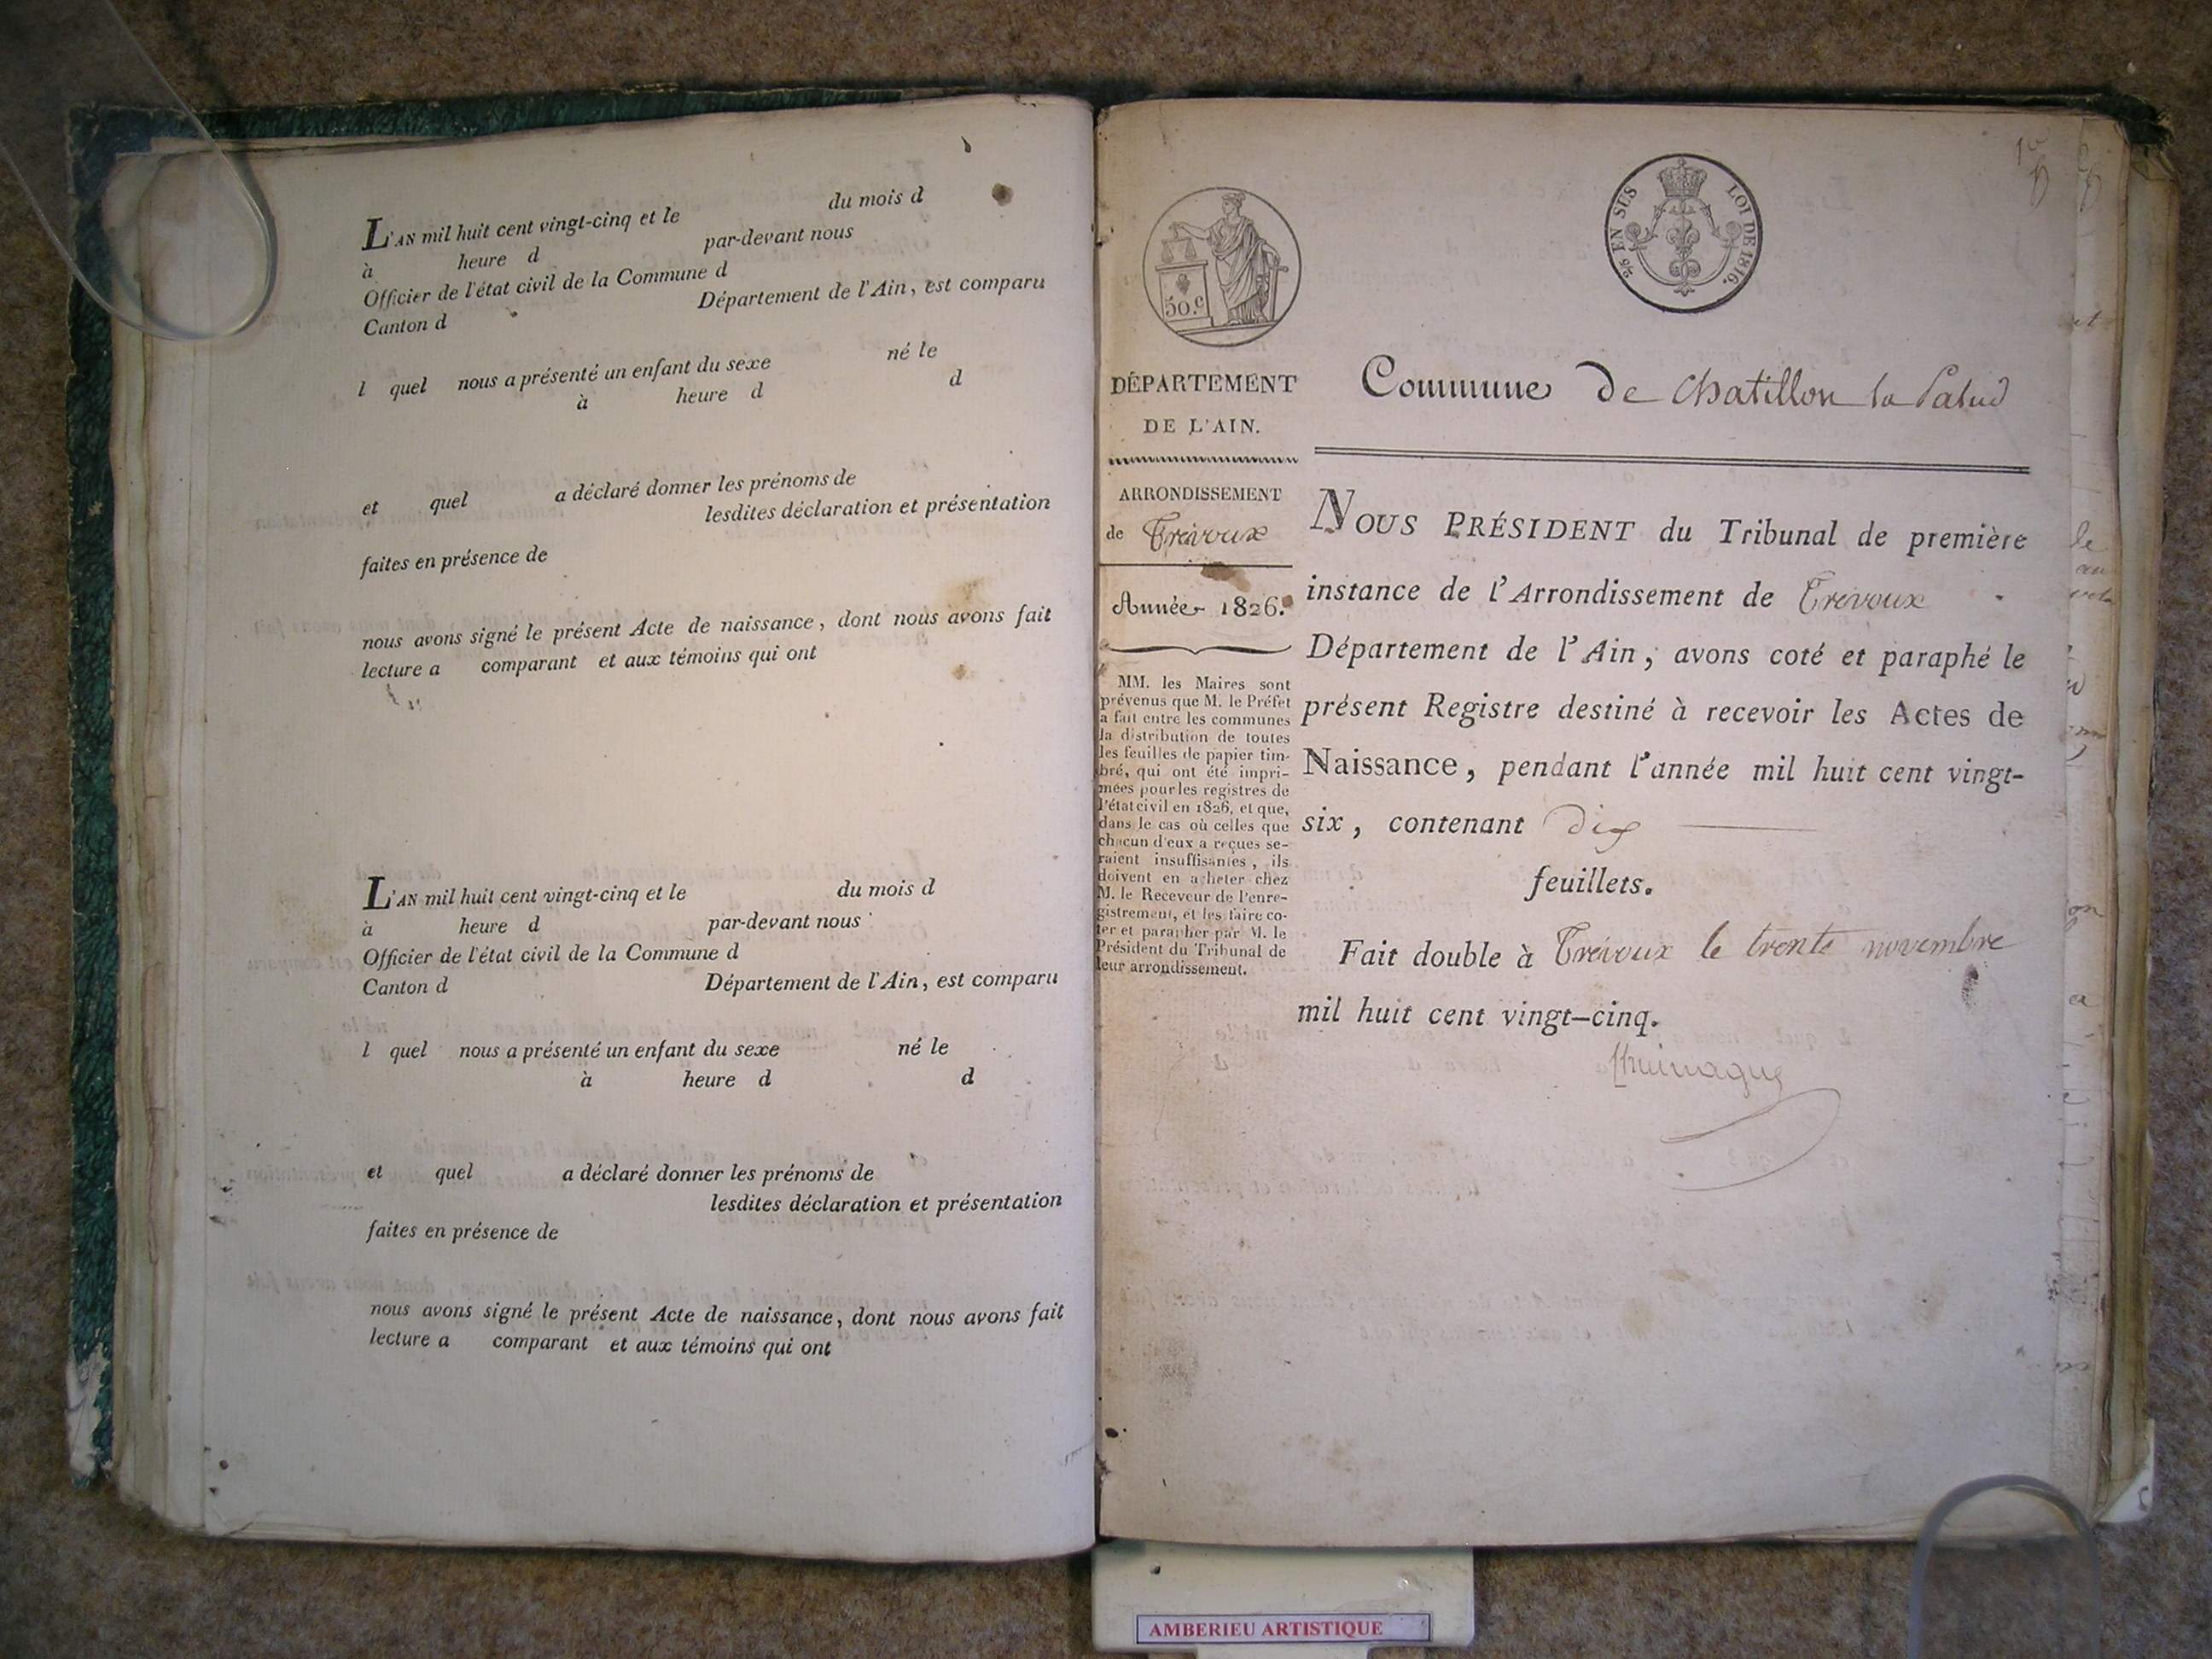 L'AN mil huit cent vingt-cinq et le du mois d
à heure d par-devant nous
Officier de l'état civil de la Commune d
Canton d Département de l'Ain, est comparu
l quel nous a présenté un enfant du sexe né le
à heure d d
et quel a déclaré donner les prénoms de
lesdites déclaration et présentation
faites en présence de
nous avons signé le présent Acte de naissance, dont nous avons fait
lecture a comparant et aux témoins qui ont
L'AN mil huit cent vingt-cinq et le du mois d
à heure d par-devant nous
Officier de l'état civil de la Commune d
Canton d Département de l'Ain, est comparu
l quel nous a présenté un enfant du sexe né le
à heure d d
et quel a déclaré donner les prénoms de
lesdites déclaration et présentation
faites en présence de
nous avons signé le présent Acte de naissance, dont nous avons fait
lecture a comparant et aux témoins qui ont
50.c
DÉPARTEMENT
DE L'AIN.
ARRONDISSEMENT
de Trévoux
Année 1826.
MM. les Maires sont
prévenus que M. le Préfet
a fait entre les communes
la distribution de toutes
les feuilles de papier tim-
bré, qui ont été impri-
mées pour les registres de
l'état civil en 1826, et que,
dans le cas où celles que
chacun d'eux a reçues se-
raient insuffisantes, ils
doivent en acheter chez
M. le Receveur de l'enre-
gistrement, et les faire co-
ter et parapher par M. le
Président du Tribunal de
leur arrondissement.
EN SUS LOI DE 1816.
Commune de Chatillon la Palud
NOUS PRÉSIDENT du Tribunal de première
instance de l'Arrondissement de Trevoux
Département de l'Ain, avons coté et paraphé le
présent Registre destiné à recevoir les Actes de
Naissance, pendant l'année mil huit cent vingt-
six, contenant dix
feuillets.
Fait double à Trévoux le trente novembre
mil huit cent vingt-cinq.
AMBERIEU ARTISTIQUE